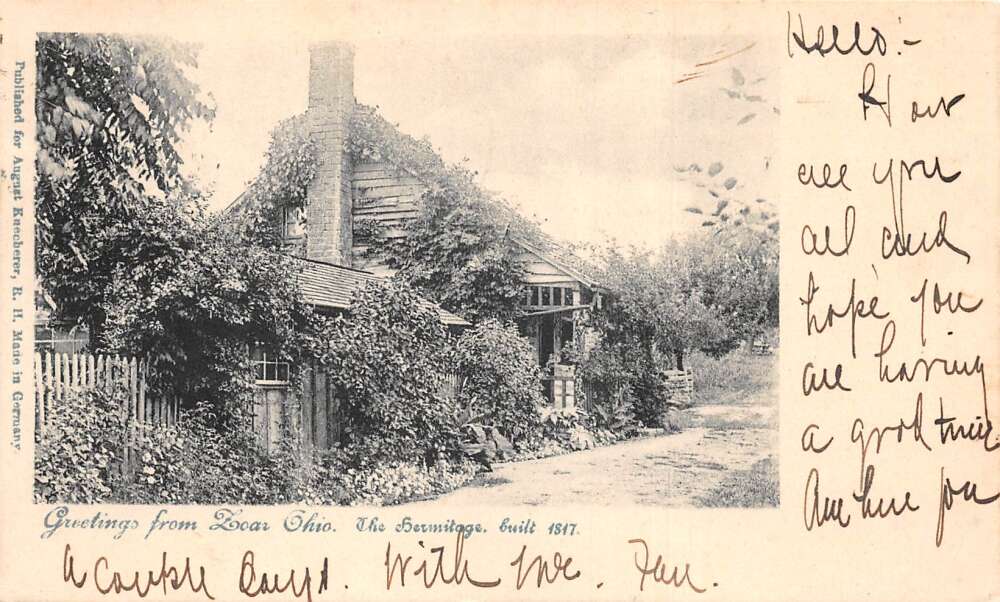 Published for August Kuecherer, R. H. Made in Germany
Hello:-
How
are you
all and
hope you
are having
a good time
Am here for
Greetings from Zoar Ohio. The Hermitage. built 1817.
a couple Days. With love.